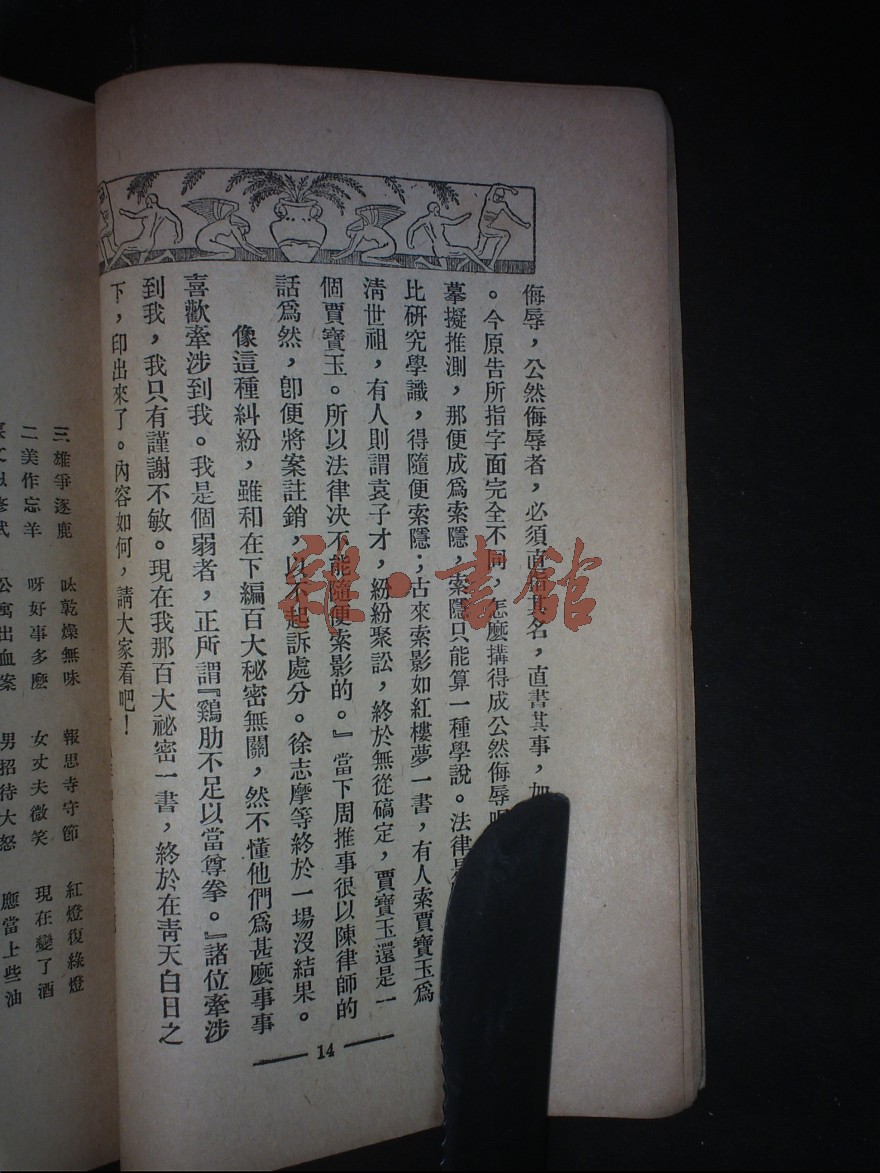 侮辱，公然侮辱者，必須直指其名，直書其事，
。今原告所指字面完全不同，怎麼搆得成公然侮辱
摹擬推測，那便成爲索隱，索隱只能算一種學說。法律
比研究學識，得隨便索隱；古來索影如紅樓夢一書，有人索賈寶玉爲
淸世祖，有人則謂袁子才，紛紛聚訟，終於無從碻定，賈寶玉還是一
個賈寶玉。所以法律决不能隨便索影的。』當下周推事很以陳律師的
話爲然，卽便將案註銷，以不起訴處分。徐志摩等終於一場沒結果。
像這種糾紛，雖和在下編百大秘密無關，然不懂他們爲甚麼事事
喜歡牽涉到我。我是個弱者，正所謂『鷄肋不足以當尊拳。』諸位牽涉
到我，我只有謹謝不敏。現在我那百大祕密一書，終於在靑天白日之
下，印出來了。內容如何，請大家看吧！
14
三雄爭逐鹿 味乾燥無味 報恩寺守節 紅燈復綠燈
二美作忘羊 呀好事多麽 女丈夫微笑 現在變了酒
公寓出血案 男招待大怒 應當上些油
雜·書館